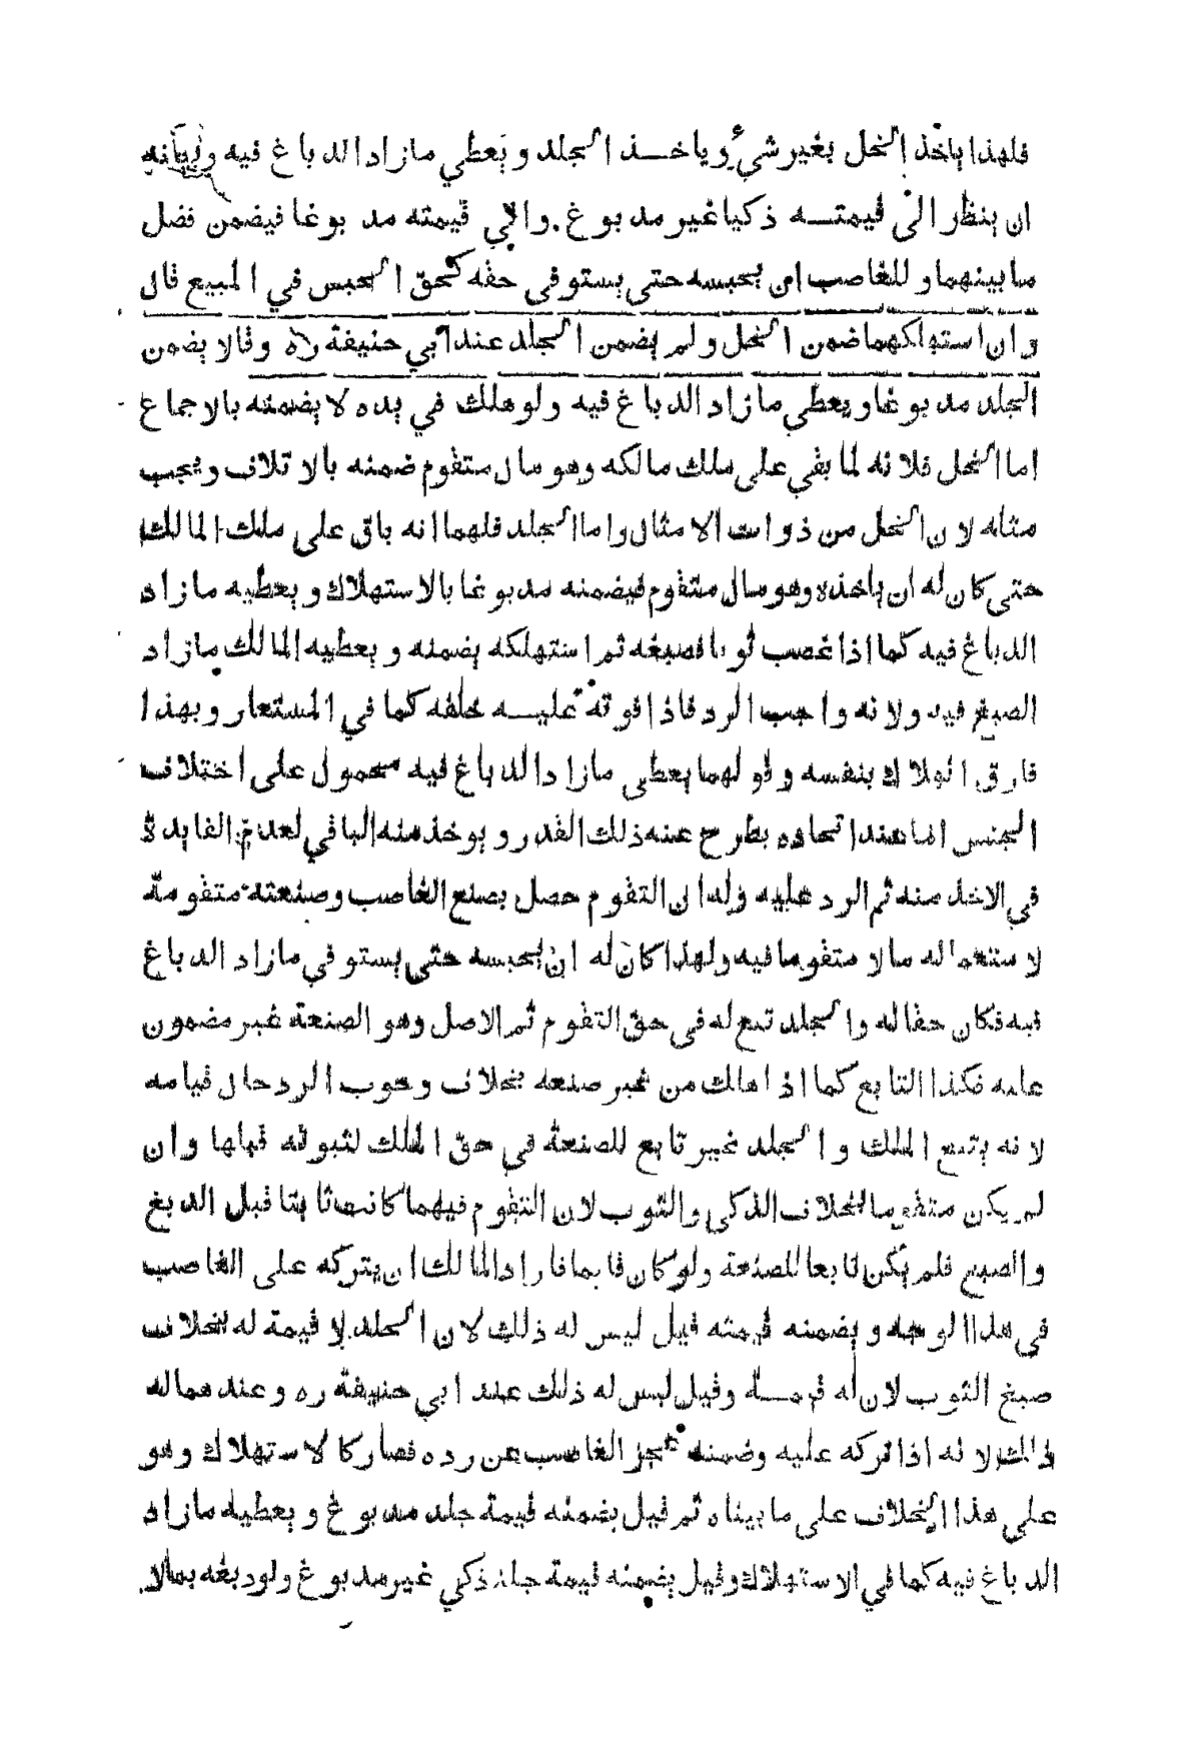 فلهذا ياخذ الخل بغير شيء وياخذ الجلد ويعطي مازاد الدباغ فيه وبيانه
ان ينظر الى قيمته ذكيا غير مدبوغ والى قيمته مدبوغا فيضمن فضل
مابينهما وللغاصب ان يحبسه حتى يستوفى حقه كحق الحبس في المبيع قال
وان استهلكهما ضمن الخل ولم يضمن الجلد عند ابي حنيفة ره وقالا يضمن
الجلد مدبوغا ويعطي مازاد الدباغ فيه ولو هلك في يده لا يضمنه بالاجماع
اما الخل فلانه لما بقي على ملك مالكه وهو مال متقوم ضمنه بالاتلاف ويجب
مثله لان الخل من ذوات الامثال واما الجلد فلهما انه باق على ملك المالك
حتى كان له ان ياخذه وهو مال متقوم فيضمنه مدبوغا بالاستهلاك ويعطيه مازاد
الدباغ فيه كما اذا غصب ثوبا فصبغه ثم استهلكه يضمنه ويعطيه المالك مازاد
الصبغ فيه ولانه واجب الرد فاذا فوته عليه خلفه كما في المستعار وبهذا
فارق الهلاك بنفسه وقولهما يعطى مازاد الدباغ فيه محمول على اختلاف
الجنس اما عند اتحاده يطرح عنه ذلك القدر ويوخذ منه الباقي لعدم الفايدة
في الاخذ منه ثم الرد عليه وله ان التقوم حصل بصنع الغاصب وصنعته متقومة
لاستعماله مالا متقوما فيه ولهذا كان له ان يحبسه حتى يستوفي مازاد الدباغ
فيه فكان حقا له والجلد تبع له في حق التقوم ثم الاصل وهو الصنعة غير مضمون
عليه فكذا التابع كما اذا هلك من غير صنعه بخلاف وجوب الرد حال قيامه
لانه يتبع الملك والجلد غير تابع للصنعة في حق الملك لثبوته قبلها وان
لم يكن متقوما بخلاف الذكي والثوب لان التقوم فيهما كانت ثابتا قبل الدبغ
والصبغ فلم يكن تابعا للصنعة ولو كان قايما فاراد المالك ان يتركه على الغاصب
في هذا الوجه ويضمنه قيمته قيل ليس له ذلك لان الجلد لا قيمة له بخلاف
صبغ الثوب لان له قيمة وقيل ليس له ذلك عند ابي حنيفة ره وعندهما له
ذلك لانه اذا تركه عليه وضمنه عجز الغاصب عن رده فصار كالاستهلاك وهو
على هذا الخلاف على مابيناه ثم قيل يضمنه قيمة جلد مدبوغ ويعطيه مازاد
الدباغ فيه كما في الاستهلاك وقيل يضمنه قيمة جلد ذكي غير مدبوغ ولو دبغه بمالا